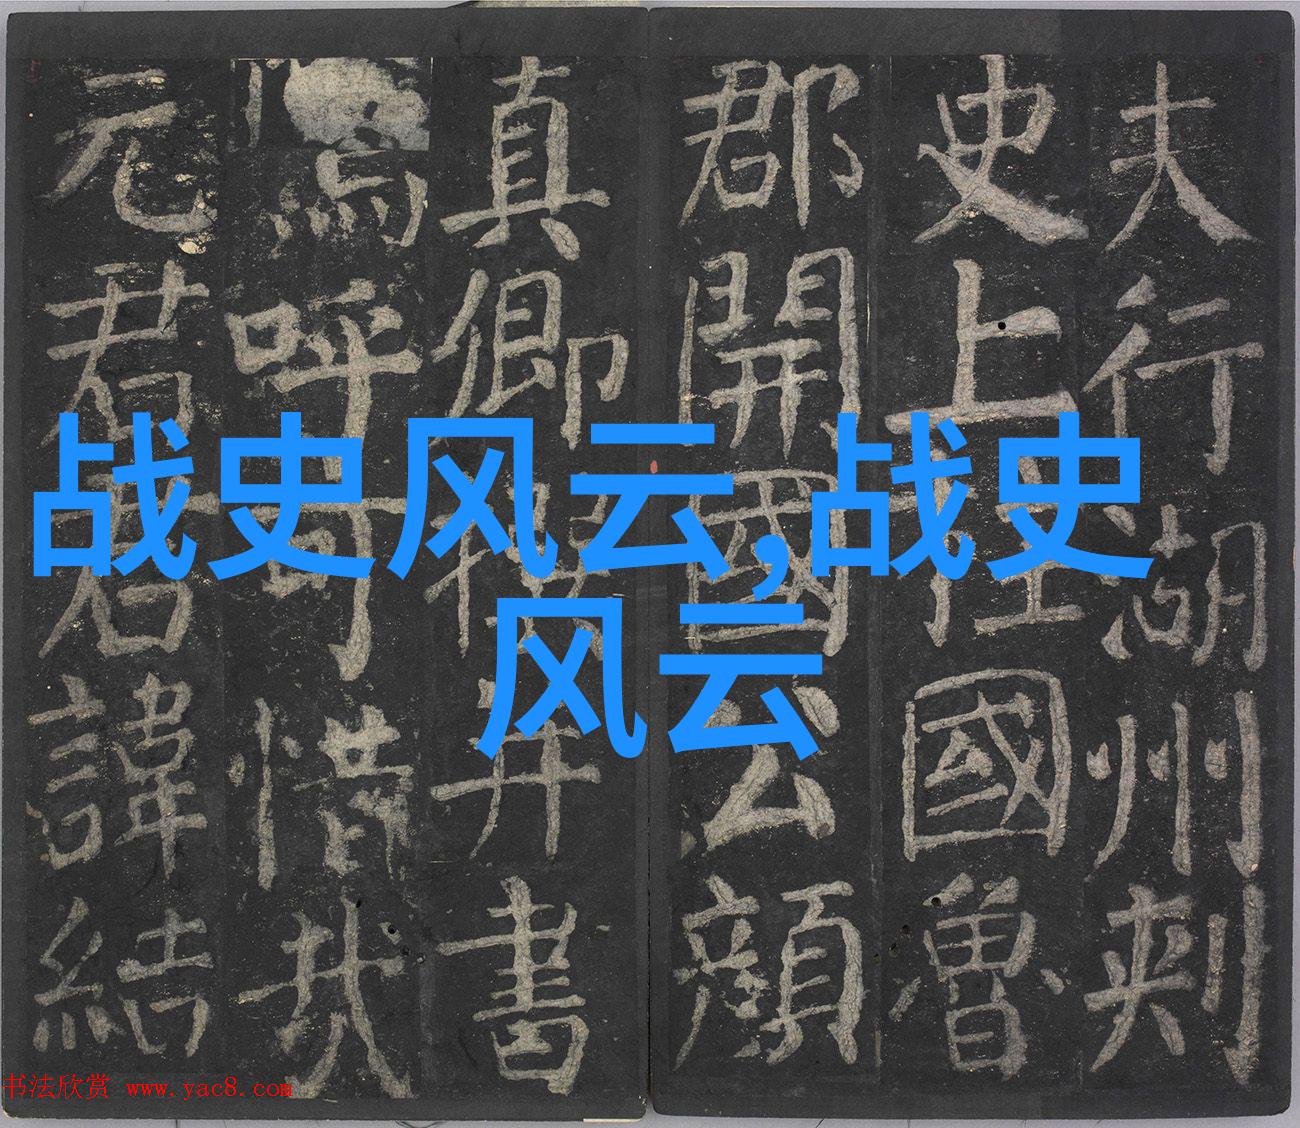 夫行湖州刺
史上柱國魯
郡開國公顏
真卿撰并書
嗚呼可惜哉
元君君諱結
战史风云,战史
风云
书法欣赏 www.yac8.com